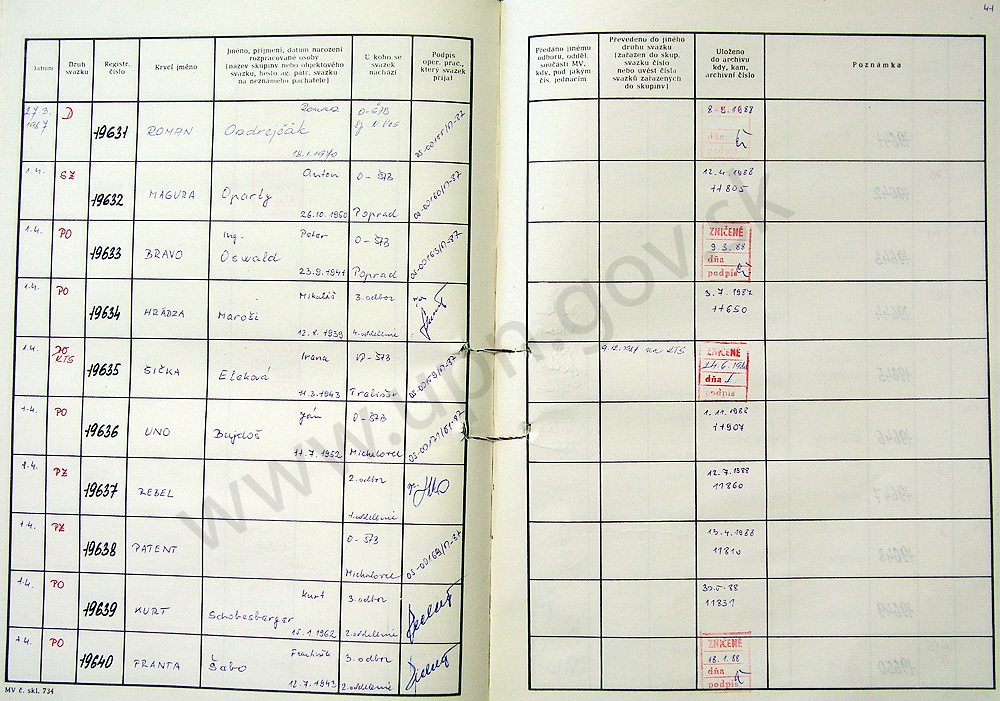 41
Datum
Druh svazku
Registr. číslo
Krycí jméno
Jméno, příjmení, datum narození
rozpracované osoby
(název skupiny nebo objektového
svazku, heslo ag. pátr. svazku
na neznámého pachatele)
U koho se
svazek
nachází
Podpis
oper. prac.,
který svazek
přijal
Předáno jinému
odboru, odděl.
součásti MV,
kdy, pod jakým
čís. jednacím
Převedeno do jiného
druhu svazku
(zařazen do skup.
svazku číslo
nebo uvést čísla
svazků zařazených
do skupiny)
Uloženo
do archivu
kdy, kam,
archivní číslo
Poznámka
27.3. 1987 D 19631 ROMAN Roman Ondrejčák 18.1.1970 O-ŠTB 8.9.1988
dňa
1.4. SZ 19632 MAGURA Anton Oparty 26.10.1950 O-ŠTB Poprad 12.4.1988 11805
1.4. PO 19633 BRAVO Ing. Peter Oswald 23.9.1941 O-ŠTB Poprad ZNIČENÉ 9.3.88
dňa
podpis
1.4. PO 19634 HRÁDZA Mikuláš Maroši 12.8.1939 3. odbor 4. oddelenie 3.7.1987 11650
1.4. 19635 SIČKA Irena Eleková 11.3.1943 O-ŠTB Trebišov 9.12.1987 na KTS ZNIČENÉ
dňa
podpis
1.4. PO 19636 UNO Ján Bujdoš 11.7.1952 O-ŠTB Michalovce 1.11.1988 11907
1.4. PZ 19637 REBEL 2. odbor 1. oddelenie 12.7.1988 11860
1.4. PZ 19638 PATENT O-ŠTB Michalovce 13.4.1988 11810
1.4. PO 19639 KURT Kurt Schobesberger 15.1.1962 3. odbor 2. oddelenie 30.5.88 11831
1.4. PO 19640 FRANTA František Šabo 12.7.1943 3. odbor 2. oddelenie ZNIČENÉ 18.1.88
dňa
podpis
MV č. skl. 734
www.upn.gov.sk